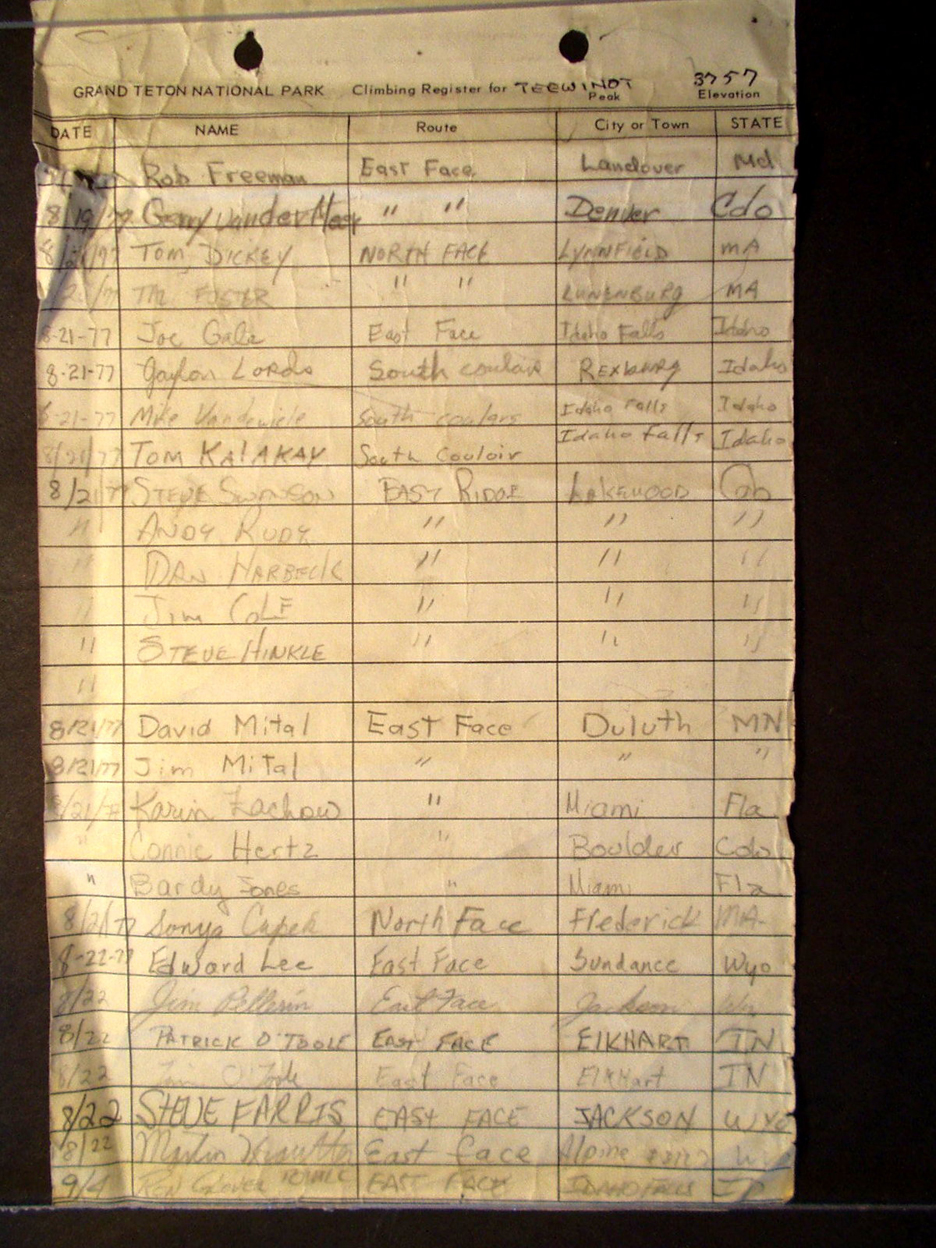 GRAND TETON NATIONAL PARK Climbing Register for TEEWINOT Peak 3757 Elevation
DATE NAME Route City or Town STATE
Rob Freeman East Face Landover Md
8/19/77 Gerry VanderMeer " " Denver Colo
Tom Dickey NORTH FACE LYNNFIELD MA
FOSTER " " LUNENBURG MA
8-21-77 Joe Gale East Face Idaho Falls Idaho
8-21-77 Gaylon Lords South couloir Rexburg Idaho
8-21-77 Mike South Idaho Falls Idaho
8/21/77 Tom KALAKAY South Couloir Idaho Falls Idaho
8/21/77 STEVE SWANSON EAST RIDGE LAKEWOOD Colo
" ANDY RUDY " " "
" DAN HARBECK " " "
" Jim COLE " " "
" STEVE HINKLE " " "
"
8/21/77 David Mital East Face Duluth MN
8/21/77 Jim Mital " " "
8/21/77 Karin Zachow " Miami Fla
" Connie Hertz " Boulder Colo
" Bardy Jones " Miami Fla
8/21/77 Sonya Capek North Face Frederick
8-22-77 Edward Lee East Face Sundance Wyo
8/22 Jim Pellerin East Face Jackson
8/22 PATRICK O'TOOLE EAST FACE ELKHART IN
8/22 O'Toole East Face ElkHart IN
8/22 STEVE FARRIS EAST FACE JACKSON WYO
8/22 East face Alpine
9/4 EAST FACE IDAHO FALLS ID